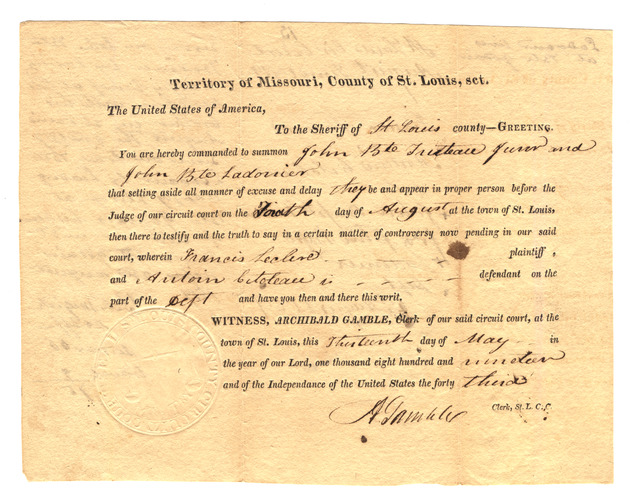 Territory of Missouri, County of St. Louis, sct.
The United States of America,
To the Sheriff of St Louis county—GREETING.
You are hereby commanded to summon John Bte Trudeau Junr and
John Bte Ladonier
that setting aside all manner of excuse and delay they be and appear in proper person before the
Judge of our circuit court on the Fourth day of August at the town of St. Louis,
then there to testify and the truth to say in a certain matter of controversy now pending in our said
court, wherein Francis Leclerc plaintiff,
and Antoin is defendant on the
part of the Deft and have you then and there this writ.
WITNESS, ARCHIBALD GAMBLE, Clerk of our said circuit court, at the
town of St. Louis, this Thirteenth day of May in
the year of our Lord, one thousand eight hundred and nineteen
and of the Independence of the United States the forty third
A Gamble Clerk, St. L. C. C.